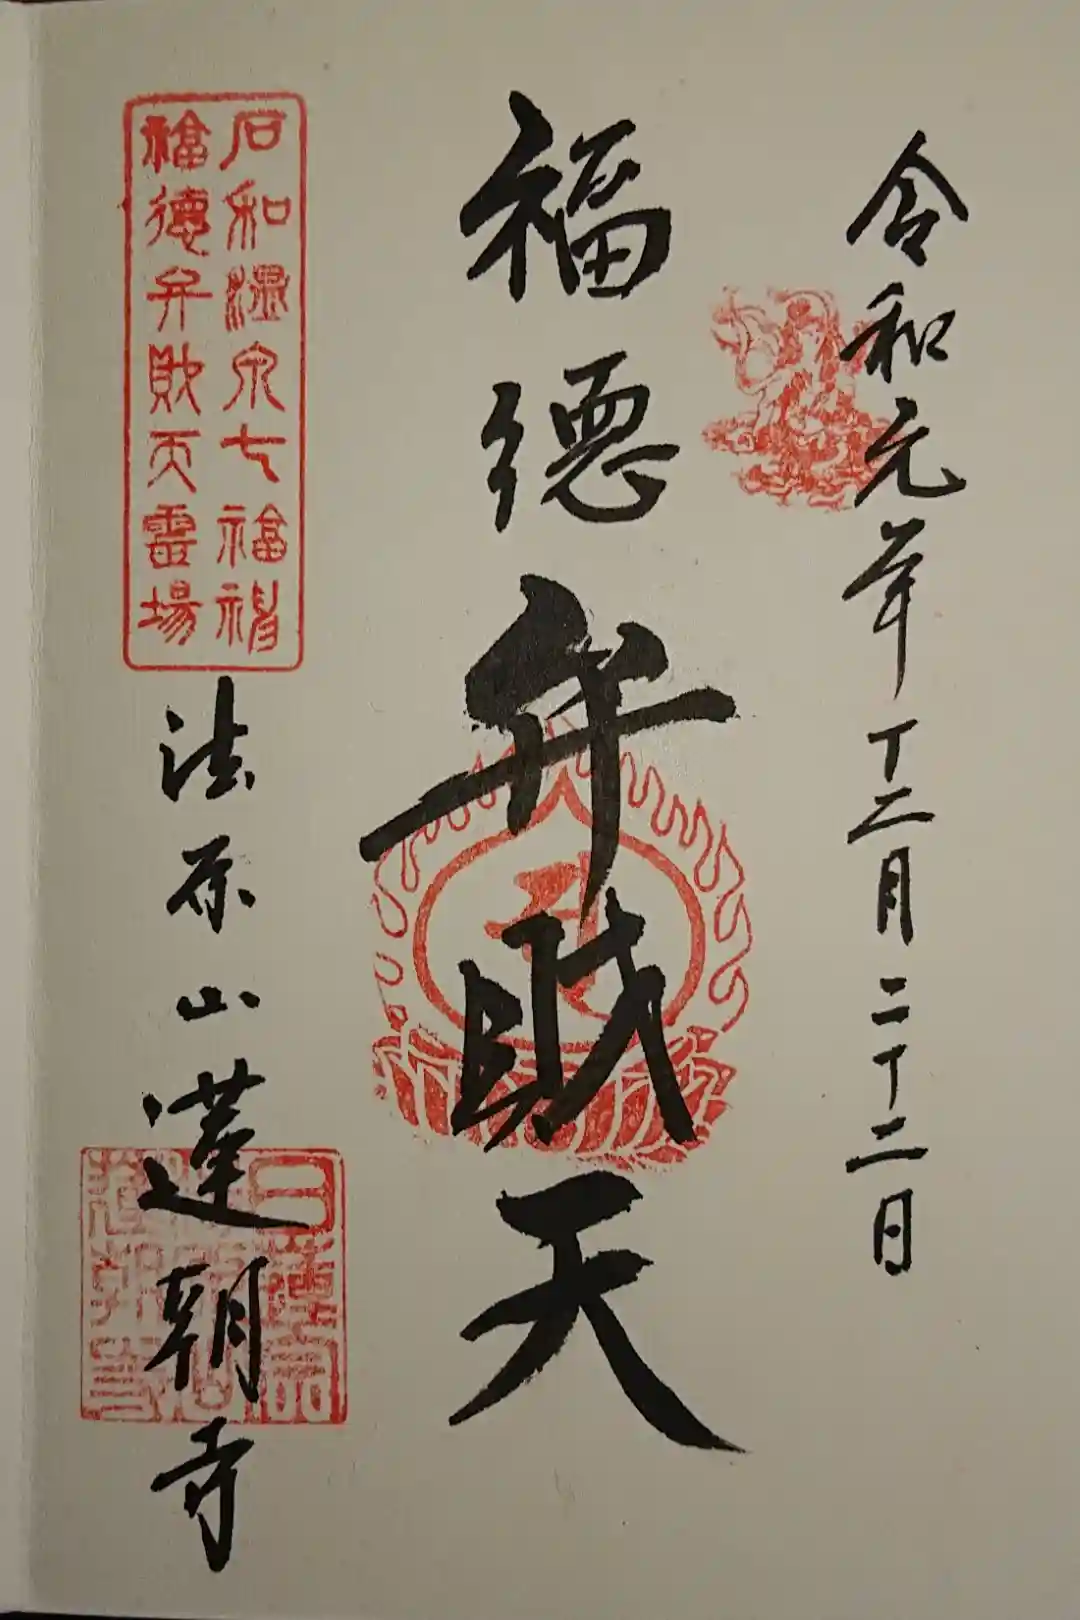 令和元年十二月二十二日
福徳弁財天
石和温泉七福神
福徳弁財天霊場
法原山蓮朝寺